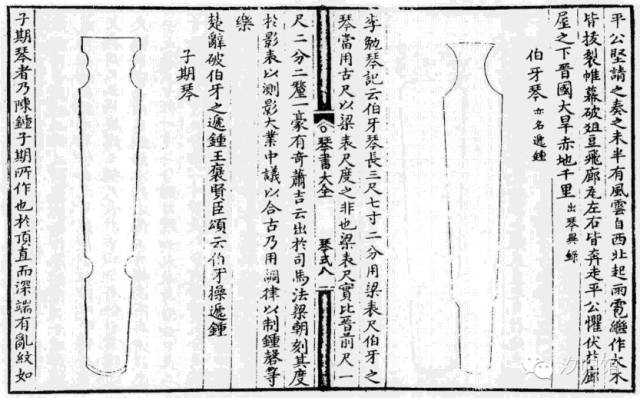 平公堅請之奏之未半有風雲自西北起雨雹繼作大木
皆拔裂帷幕破俎豆飛廊瓦左右皆奔走平公懼伏於廊
屋之下晉國大旱赤地千里 出琴異錄
伯牙琴 亦名遞鍾
李勉琴記云伯牙琴長三尺七寸二分用梁表尺伯牙之
琴當用古尺以梁表尺度之非也梁表尺實比晉前尺一
琴書大全 琴式八
尺二分二釐一豪有奇蕭吉云出於司馬法梁朝刻其度
於影表以測影大業中議以合古乃用調律以制鍾磬等
樂
楚辭破伯牙之遞鍾王襃賢臣頌云伯牙操遞鍾
子期琴
子期琴者乃陳鍾子期所作也於頂直而深端有亂紋如